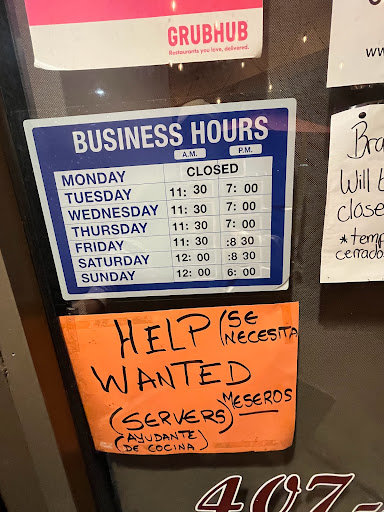 GRUBHUB
Restaurants you love, delivered.
BUSINESS HOURS
A.M. P.M.
MONDAY CLOSED
TUESDAY 11: 30 7: 00
WEDNESDAY 11: 30 7: 00
THURSDAY 11: 30 7: 00
FRIDAY 11: 30 :8 30
SATURDAY 12: 00 :8 30
SUNDAY 12: 00 6: 00
HELP (SE NECESITA
WANTED
(SERVERS) MESEROS
(AYUDANTE)
DE COCINA)
www
Bra
Will b
close
*temp
cerrado
407-